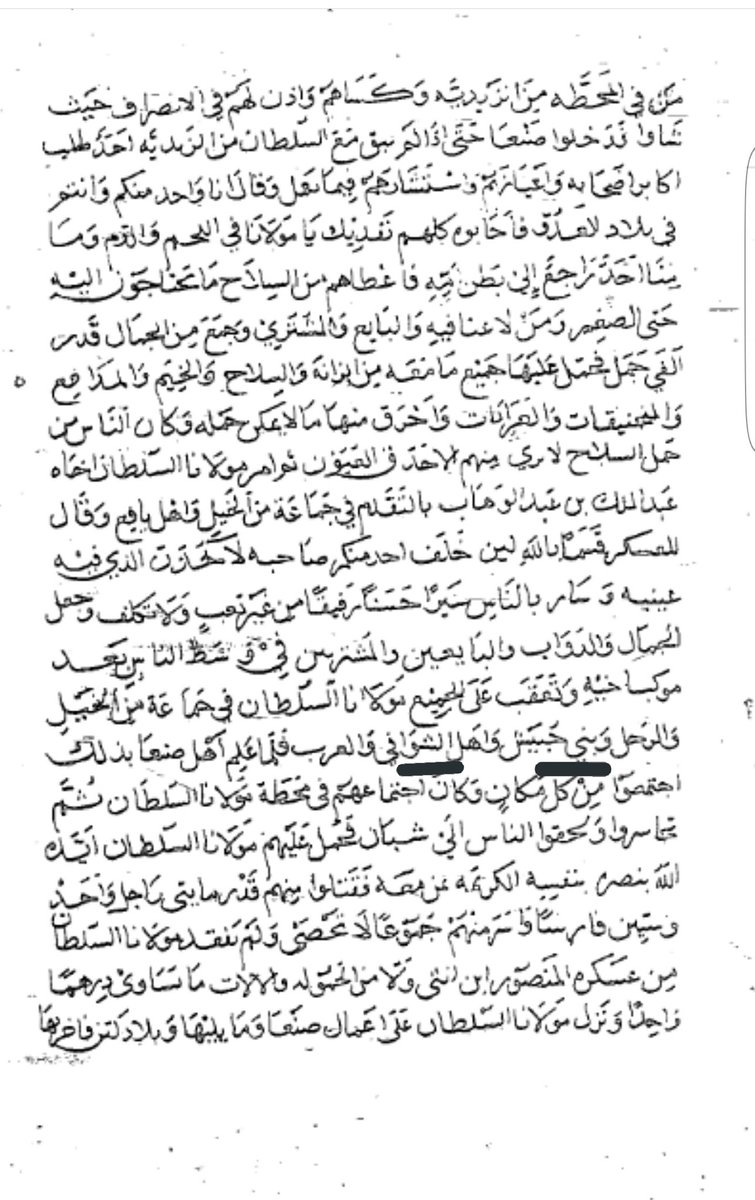 من في المحطه من الزيديه وكساهم واذن لهم في الانصراف حيث
شاوا قدخلوا صنعا حتى اذا لم يبق مع السلطان من الزيديه احد طلب
اكابر اصحابه واعيانهم واستشارهم فيما يفعل وقال انا واحد منكم وانتم
في بلاد العدو فاجابوه كلهم نفديك يا مولانا في اللحم والدم وما
مننا احد راجع إلى بطن امه فاعطاهم من السلاح ما يحتاجون اليه
حتى الصغير ومن لا عنا فيه والبايع والمشتري وجمع من الجمال قدر
الفي جمل فحمل عليها جميع ما معه من الخزانة والسلاح والخيم والمدافع
والمنجنيقات والعرادات واحرق منها ما لا يمكن حمله وكان الناس من
حمل السلاح لا يرى منهم الا حدق العيون ثم امر مولانا السلطان اخاه
عبد الملك بن عبد الوهاب بالتقدم في جماعة من الخيل واهل يافع وقال
للعسكر قسما بالله لين خلف احد منكم صاحبه لاخذت الذي فيه
عينيه وسار بالناس سيرا حسنا رفيقا من غير تعب ولا تكلف وجعل
الجمال والدواب والبايعين والمشترين في وسط الناس بعد
موكب اخيه وتعقب على الجميع مولانا السلطان في جماعة من الخيل
والرجل وبني حبيش واهل الشوافي والعرب فلما علم أهل صنعا بذلك
اجتمعوا من كل مكان وكان اجتماعهم في محطة مولانا السلطان ثم
تجاسروا ولحقوا الناس الى شبان فحمل عليهم مولانا السلطان ايده
الله بنصره بنفسه الكريمه فمن معه فقتلوا منهم قدر مايتي راجل واحد
وستين فارسا واسر منهم جموعا لا تحصى ولم يفقد مولانا السلطان
من عسكره المنصور ابن انثى ولا من الحموله والالات ما تساوي درهما
واحدا ونزل مولانا السلطان على اعمال صنعا وما يليها وبلاد فاخربها